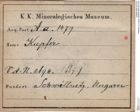 K.K. Mineralogisches Museum.
Acq. Post A.a. 1079
Name Kupfer
Fundort Schmöllnitz, Ungarn